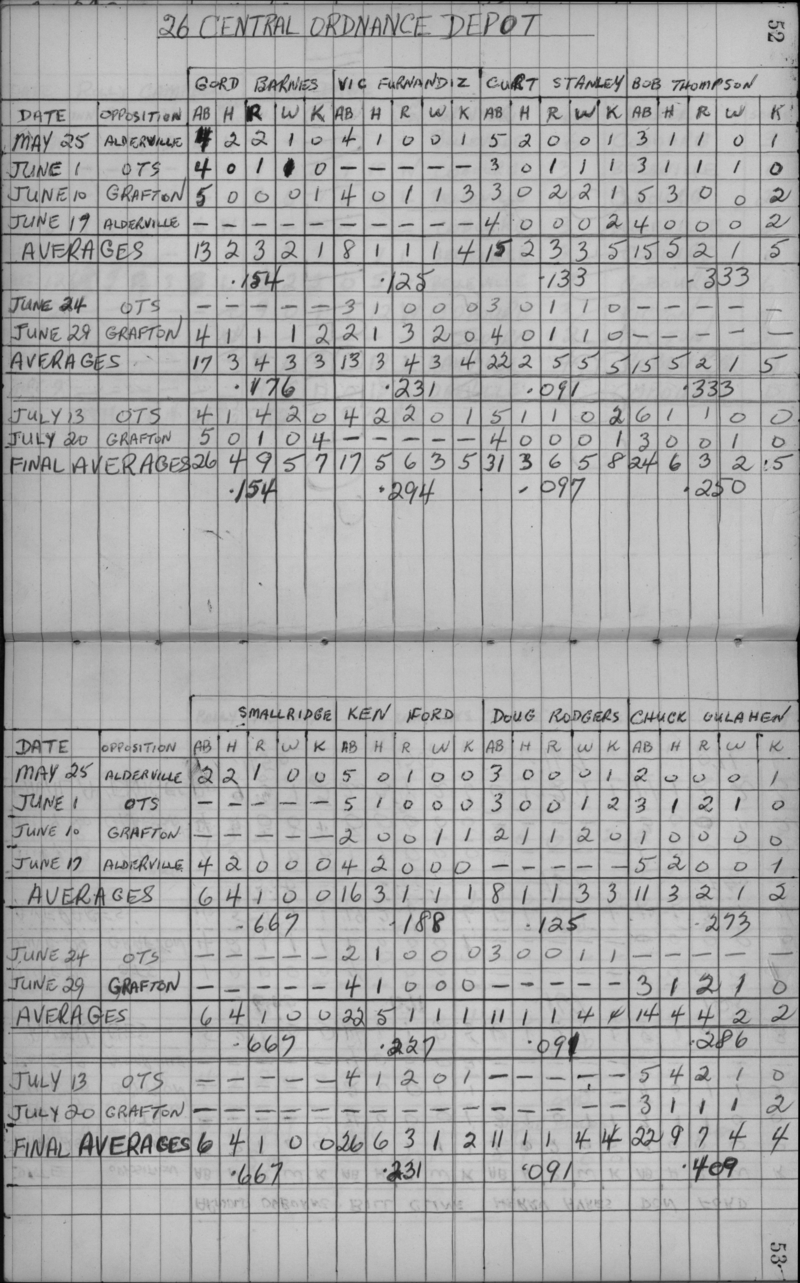 52
26 CENTRAL ORDNANCE DEPOT
GORD BARNIES VIC FURNANDIZ CURT STANLEY BOB THOMPSON
DATE OPPOSITION AB H R W K AB H R W K AB H R W K AB H R W K
MAY 25 ALDERVILLE 4 2 2 1 0 4 1 0 0 1 5 2 0 0 1 3 1 1 0 1
JUNE 1 OTS 4 0 1 1 0 – – – – – 3 0 1 1 1 3 1 1 1 0
JUNE 10 GRAFTON 5 0 0 0 1 4 0 1 1 3 3 0 2 2 1 5 3 0 0 2
JUNE 19 ALDERVILLE – – – – – – – – – – 4 0 0 0 2 4 0 0 0 2
AVERAGES 13 2 3 2 1 8 1 1 1 4 15 2 3 3 5 15 5 2 1 5
.154 .125 .133 .333
JUNE 24 OTS – – – – – 3 1 0 0 0 3 0 1 1 0 – – – – –
JUNE 29 GRAFTON 4 1 1 1 2 2 1 3 2 0 4 0 1 1 0 – – – – –
AVERAGES 17 3 4 3 3 13 3 4 3 4 22 2 5 5 5 15 5 2 1 5
.176 .231 .091 .333
JULY 13 OTS 4 1 4 2 0 4 2 2 0 1 5 1 1 0 2 6 1 1 0 0
JULY 20 GRAFTON 5 0 1 0 4 – – – – – 4 0 0 0 1 3 0 0 1 0
FINAL AVERAGES 26 4 9 5 7 17 5 6 3 5 31 3 6 5 8 24 6 3 2 5
.154 .294 .097 .250
SMALLRIDGE KEN FORD DOUG RODGERS CHUCK OULAHEN
DATE OPPOSITION AB H R W K AB H R W K AB H R W K AB H R W K
MAY 25 ALDERVILLE 2 2 1 0 0 5 0 1 0 0 3 0 0 0 1 2 0 0 0 1
JUNE 1 OTS – – – – – 5 1 0 0 0 3 0 0 1 2 3 1 2 1 0
JUNE 10 GRAFTON – – – – – 2 0 0 1 1 2 1 1 2 0 1 0 0 0 0
JUNE 17 ALDERVILLE 4 2 0 0 0 4 2 0 0 0 – – – – – 5 2 0 0 1
AVERAGES 6 4 1 0 0 16 3 1 1 1 8 1 1 3 3 11 3 2 1 2
.667 .188 .125 .273
JUNE 24 OTS – – – – – 2 1 0 0 0 3 0 0 1 1 – – – – –
JUNE 29 GRAFTON – – – – – 4 1 0 0 0 – – – – – 3 1 2 1 0
AVERAGES 6 4 1 0 0 22 5 1 1 1 11 1 1 4 4 14 4 4 2 2
.667 .227 .091 .286
JULY 13 OTS – – – – – 4 1 2 0 1 – – – – – 5 4 2 1 0
JULY 20 GRAFTON – – – – – – – – – – – – – – – 3 1 1 1 2
FINAL AVERAGES 6 4 1 0 0 26 6 3 1 2 11 1 1 4 4 22 9 7 4 4
.667 .231 .091 .409
53